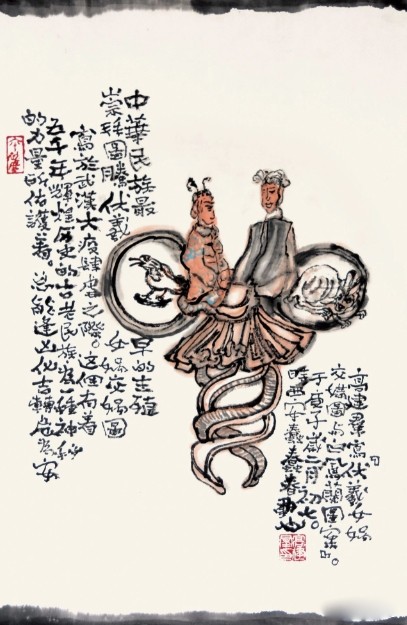 中華民族最早的生殖
崇拜圖騰伏羲女媧交媾圖
寫於武漢大疫肆虐之際。這個有着
五千年輝煌歷史的古老民族為種神祕
的力量所佑護着。總能逢凶化吉轉危為安
高建群寫「伏羲女媧
交媾圖圖案」。
于庚子歲二月初七。
西安蠢蠢春動也